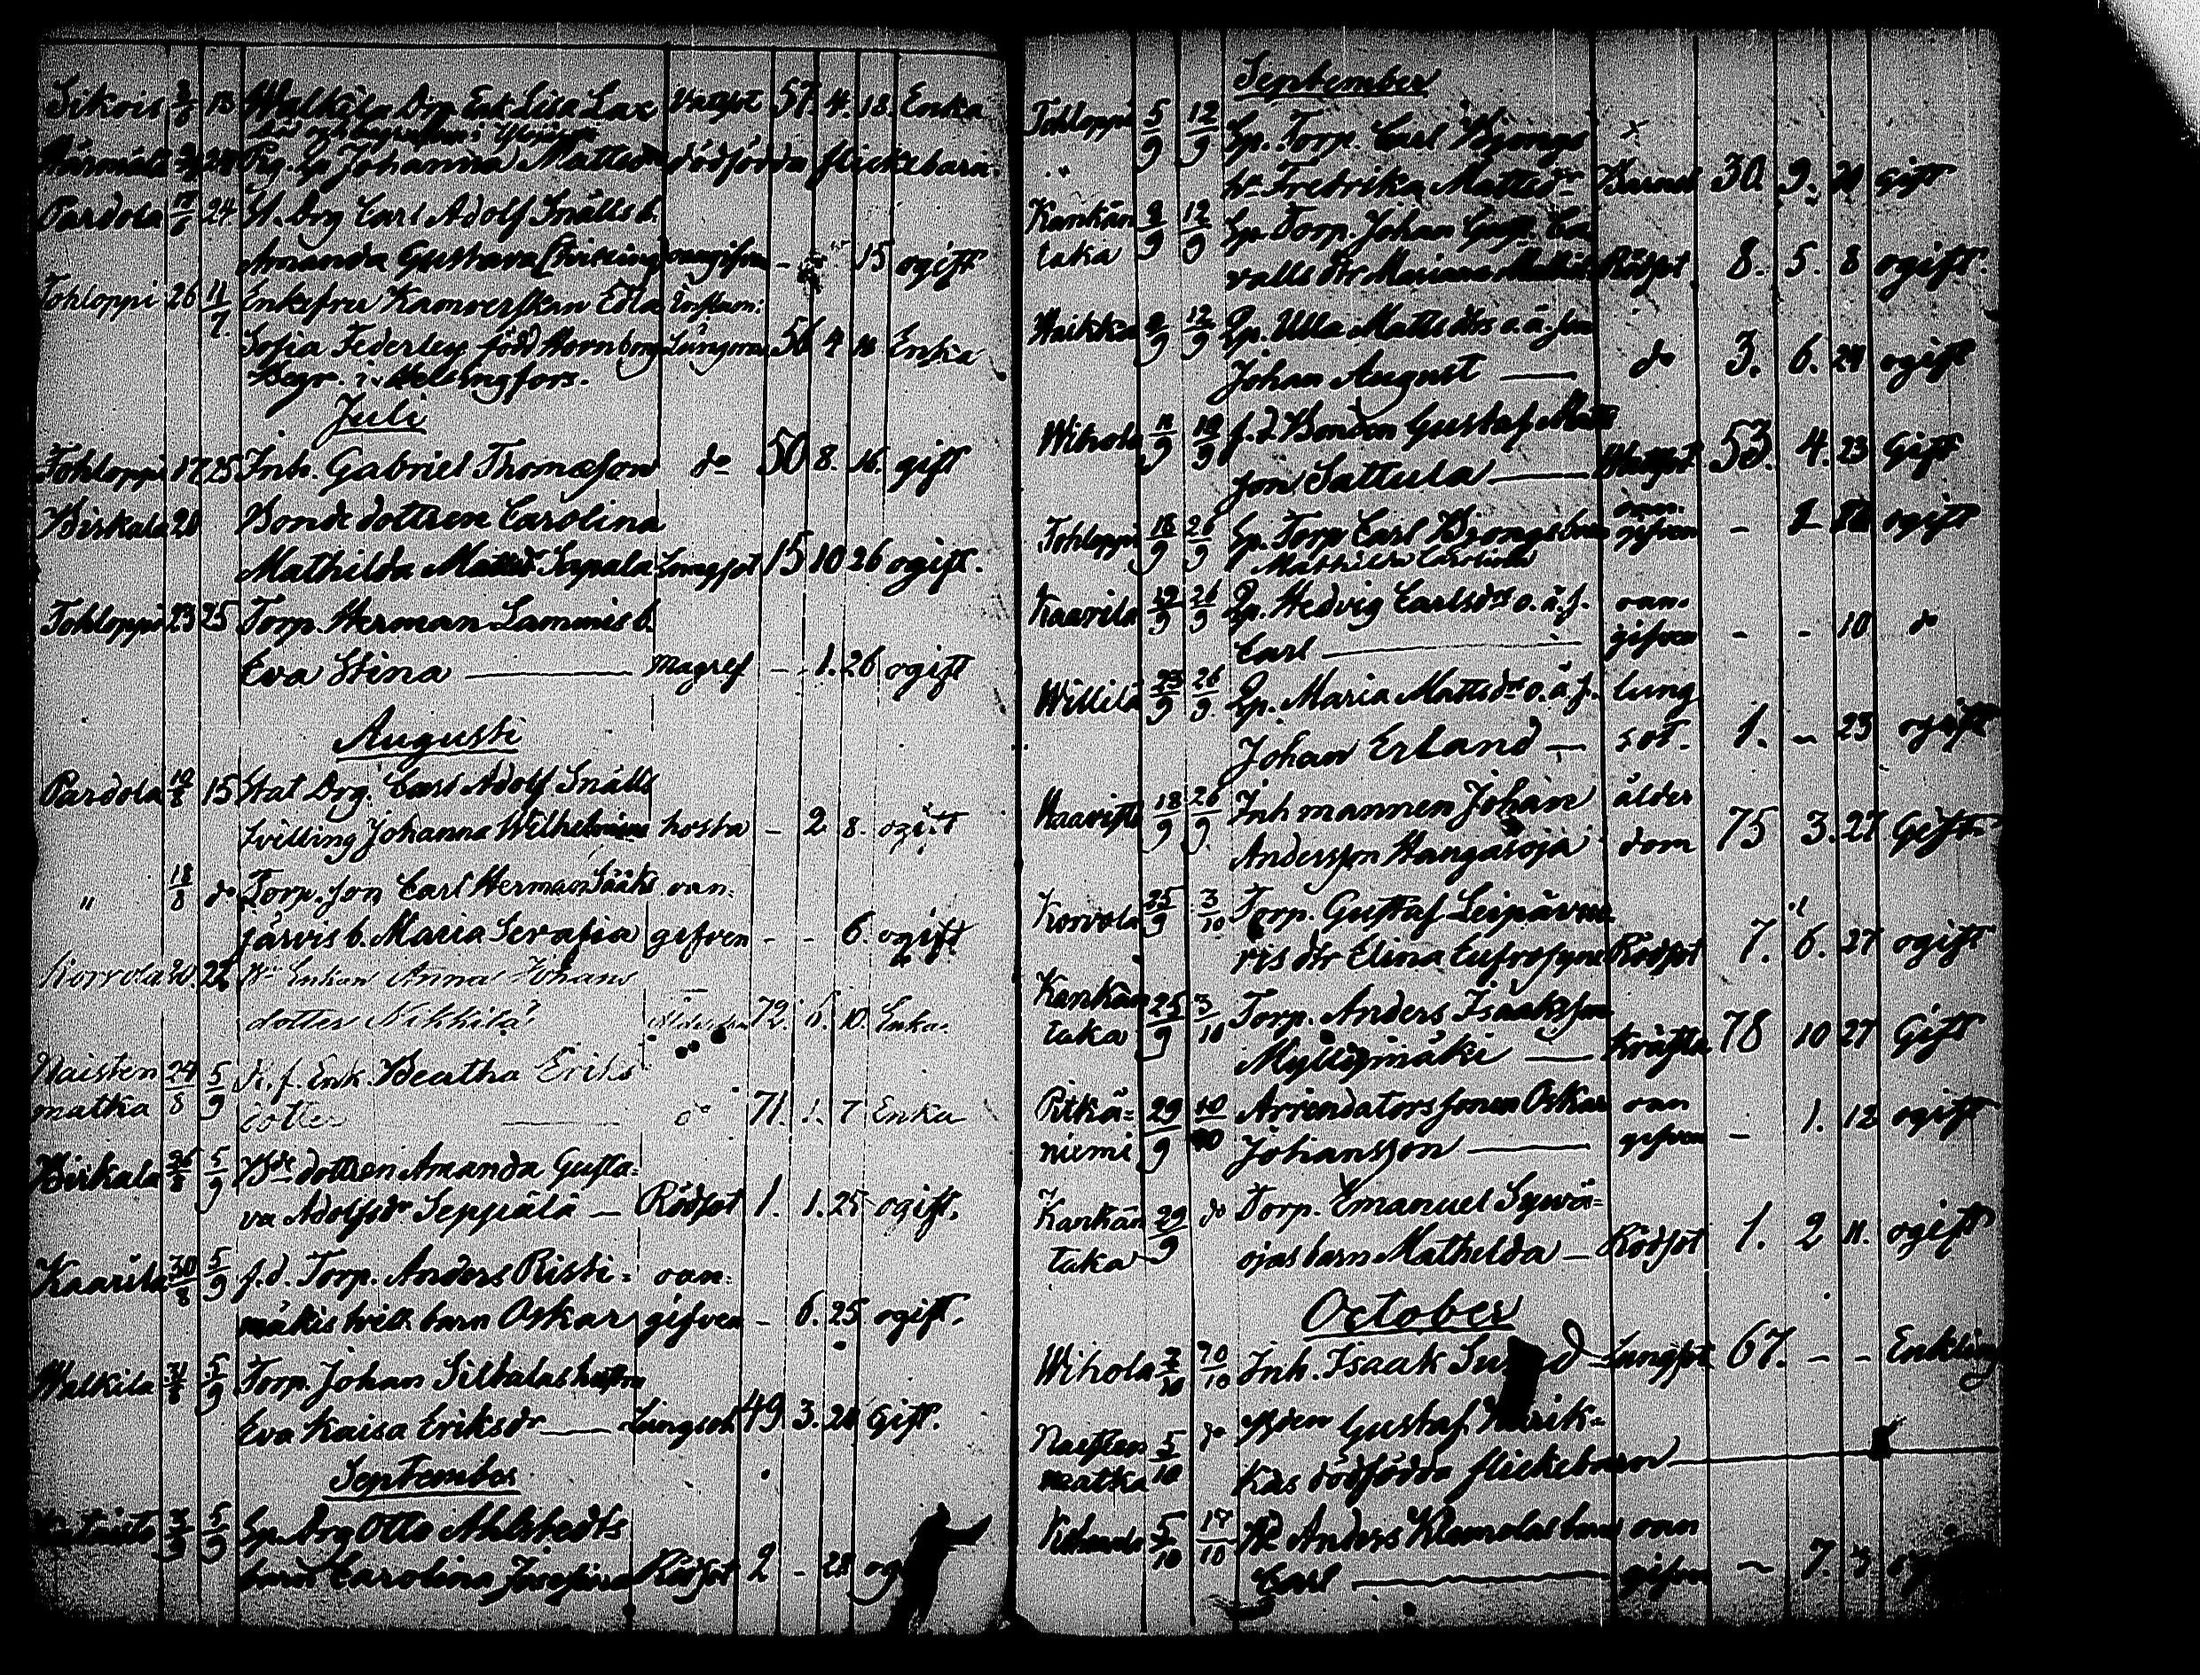 Sikois 13 Walkila Drg Enk. Lisa Lax Vattst 57. 4. 18. Enka
Pig. Ep. Johanna Mattsdr dödfödda flickebarn
Pardola 24. St. Drg Carl Adolf Snälls b.
Amanda Gustava Christina oangifven - 15 ogift
Tohloppi 26 11/7 Enkefru Kamrerskan Edla Inflam:
Sofia Federley född Hornborg Lungorna 56 4 Enka
Begr. i Helsingfors.
Juli
Tohloppi 17 25 Inh. Gabriel Thomasson do 50 8. 16. gift
Birkala 20 Bonde dottren Carolina
Mathilda Mattsdr Sapala Lungsot 15 10 26 ogift.
Tohloppi 23 25 Torp. Herman Lammis b.
Eva Stina — Magref - - 1. 26 ogift
Augusti
Pardola 10/8 15 Stat Drg. Carl Adolf Snälls
tvilling Johanna Wilhelmina hosta - 2 8. ogift
" 18/8 do Torp. son Carl Herman Sääks oan:
järvis b. Maria Serafia gifven - - 6. ogift
Korvola 20. 22 Enkan Anna Johans
dotter Nikkilä 72. 6. 10. Enka.
Naisten 24/8 5/9 K. f. Enk. Beatha Eriks
matka dotter — do 71. 1. 7 Enka
Birkala 26/8 5/9 Bde dottren Amanda Gusta=
va Adolfsdr Seppälä — Rödsot 1. 1. 25 ogift.
Kaarila 30/8 5/9 f. d. Torp. Anders Risti= oan:
mäkis tvill. barn Oskar gifven - 6. 25 ogift.
Walkila 31/8 5/9 Torp. Johan Siltalas hustru
Eva Kaisa Eriksdr — Lungsot 49 3. 20 Gift.
September
3/9 5/9 Ep. Drg Otto Ahlstedts
barn Carolina Josefina Rödsot 2 - 28 og
September
Tohloppi 5/9 12/9 Ep. Torp. Carl Bjongs x
" hu Fredrika Mattsdr Barnsb 30. 9. 20 Gift
Kankän 9/9 12/9 Ep. Torp. Johan Gust. Ca
taka valls dtr Maria Rödsot 8. 5. 8 ogift.
Waikka 9/9 12/9 Ep. Ulla Mattsdrs o. ä. son
Johan August — do 3. 6. 24 ogift
Wihola 11/9 19/9 f. d. Bonden Gustaf Matts
son Sattula — Wattsot 53. 4. 23 Gift
Tohloppi 18/9 26/9 Ep. Torp Carl Bjongs barn oan gifven - ogift
Mathilda Carolina
Kaarila 19/9 26/9 Ep. Hedvig Carlsdrs o. ä. s. oan=
Carl — gifven - - 10 do
Willilä 23/9 26/9 Ep. Maria Mattsdrs o. ä. s. lung
Johan Erland — sot. 1. - 23 ogift
Haavisto 18/9 26/9 Inh mannen Johan ålder
Andersson Hangasoja dom 75 3. 27 Gift
Korvola 25/9 3/10 Torp. Gustaf Leipävuo
ris dtr Elina Eufrosyne Rödsot 7. 6. 27 ogift
Kankän 25/9 3/10 Torp. Anders Isaaksson
taka Myllymäki — Kräfta 78 10 27 Gift
Pitkä= 29/9 10/10 Arrendators sonen Oskar oan
niemi Johansson — gifven - 1. 12 ogift
Kankän 29/9 do Torp. Emanuel Sywä=
taka ojas barn Mathilda — Rödsot 1. 2 11. ogift
October
Wihola 2/10 10/10 Inh. Isaak Lungsot 67. - - Enkling
Naisten 5/10 do Bden Gustaf
matka käs dödfödda flickebarn —
5/10 17/10 Bd Anders barn oan
Carl — gifven - 7. 7